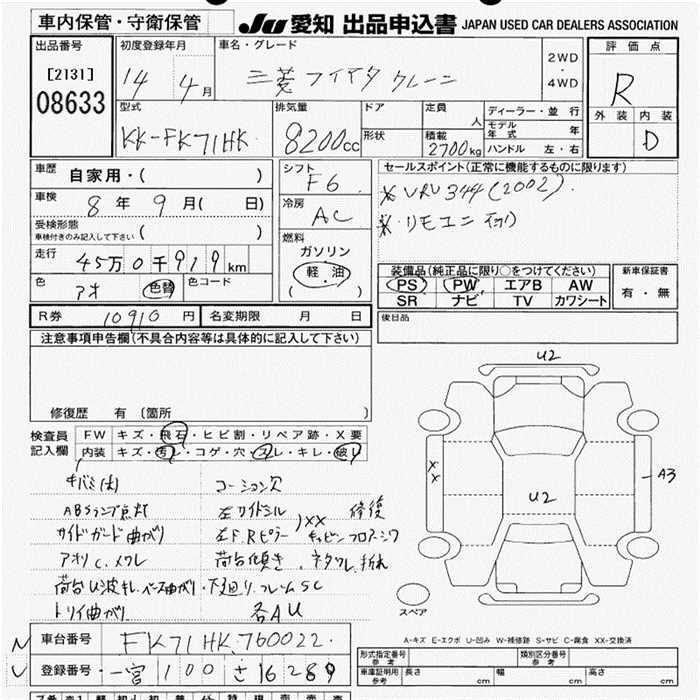 車内保管・守衛保管
JU 愛知 出品申込書 JAPAN USED CAR DEALERS ASSOCIATION
出品番号
[2131]
08633
初度登録年月
14 4月
車名・グレード
三菱 ファイター クレーン
2WD
・
4WD
評価点
R
外装 内装
D
型式
KK-FK71HK
排気量
8200cc
ドア
形状
定員 人
積載 2700kg
ディーラー・並行
モデル年式 年
ハンドル 左・右
車歴 自家用・( )
車検 8年 9月( 日)
受検形態
車検付きのみ記入して下さい ( )
走行 45万0千919km
色 アオ 色替 色コード
シフト
F6
冷房
AC
燃料
ガソリン
軽・油
( )
セールスポイント(正常に機能するものに限ります)
※ URU344(2002).
※・リモコン有り
装備品(純正品に限り○をつけてください)
PS PW エアB AW
SR ナビ TV カワシート
新車保証書
有・無
後日品
R券 10910円 名変期限 月 日
注意事項申告欄(不具合内容等は具体的に記入して下さい)
修復歴 有(箇所 )
検査員記入欄
FW キズ・飛石・ヒビ割・リペア跡・X要
内装 キズ・汚レ・コゲ・穴・スレ・キレ・破レ
キバミ(大) コーション欠
ABSランプ点灯 左サイドシル 修復
サイドガード曲がり 左F.Rピラー XX キャビンフロア
アオリC.メクレ 荷台傾き.
荷台U波キレ.ベース曲がり・下廻りフレームSC
トリイ曲がり 各AU
U2
XX
U2
A3
スペア
A-キズ E-エクボ U-凹み W-補修跡 S-サビ C-腐食 XX-交換済
N 車台番号 FK71HK.760022.
U 登録番号 一宮 100 さ 16 289
形式指定番号
参考
類別区分番号
参考
車庫証明用
参考
長さ cm 幅 cm 高さ cm